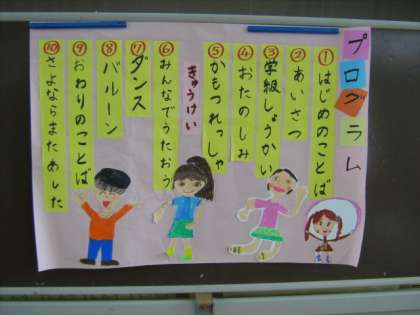 プログラム
①はじめのことば
②あいさつ
③学級しょうかい
④おたのしみ
⑤かもつれっしゃ
きゅうけい
⑥みんなでうたおう
⑦ダンス
⑧バルーン
⑨おわりのことば
⑩さよならまたあした